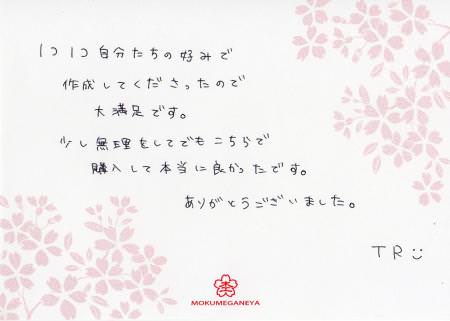 1コ1コ自分たちの好みで
作成してくださったので
大満足です。
少し無理をしてでもこちらで
購入して本当に良かったです。
ありがとうございました。
TR
杢
MOKUMEGANEYA